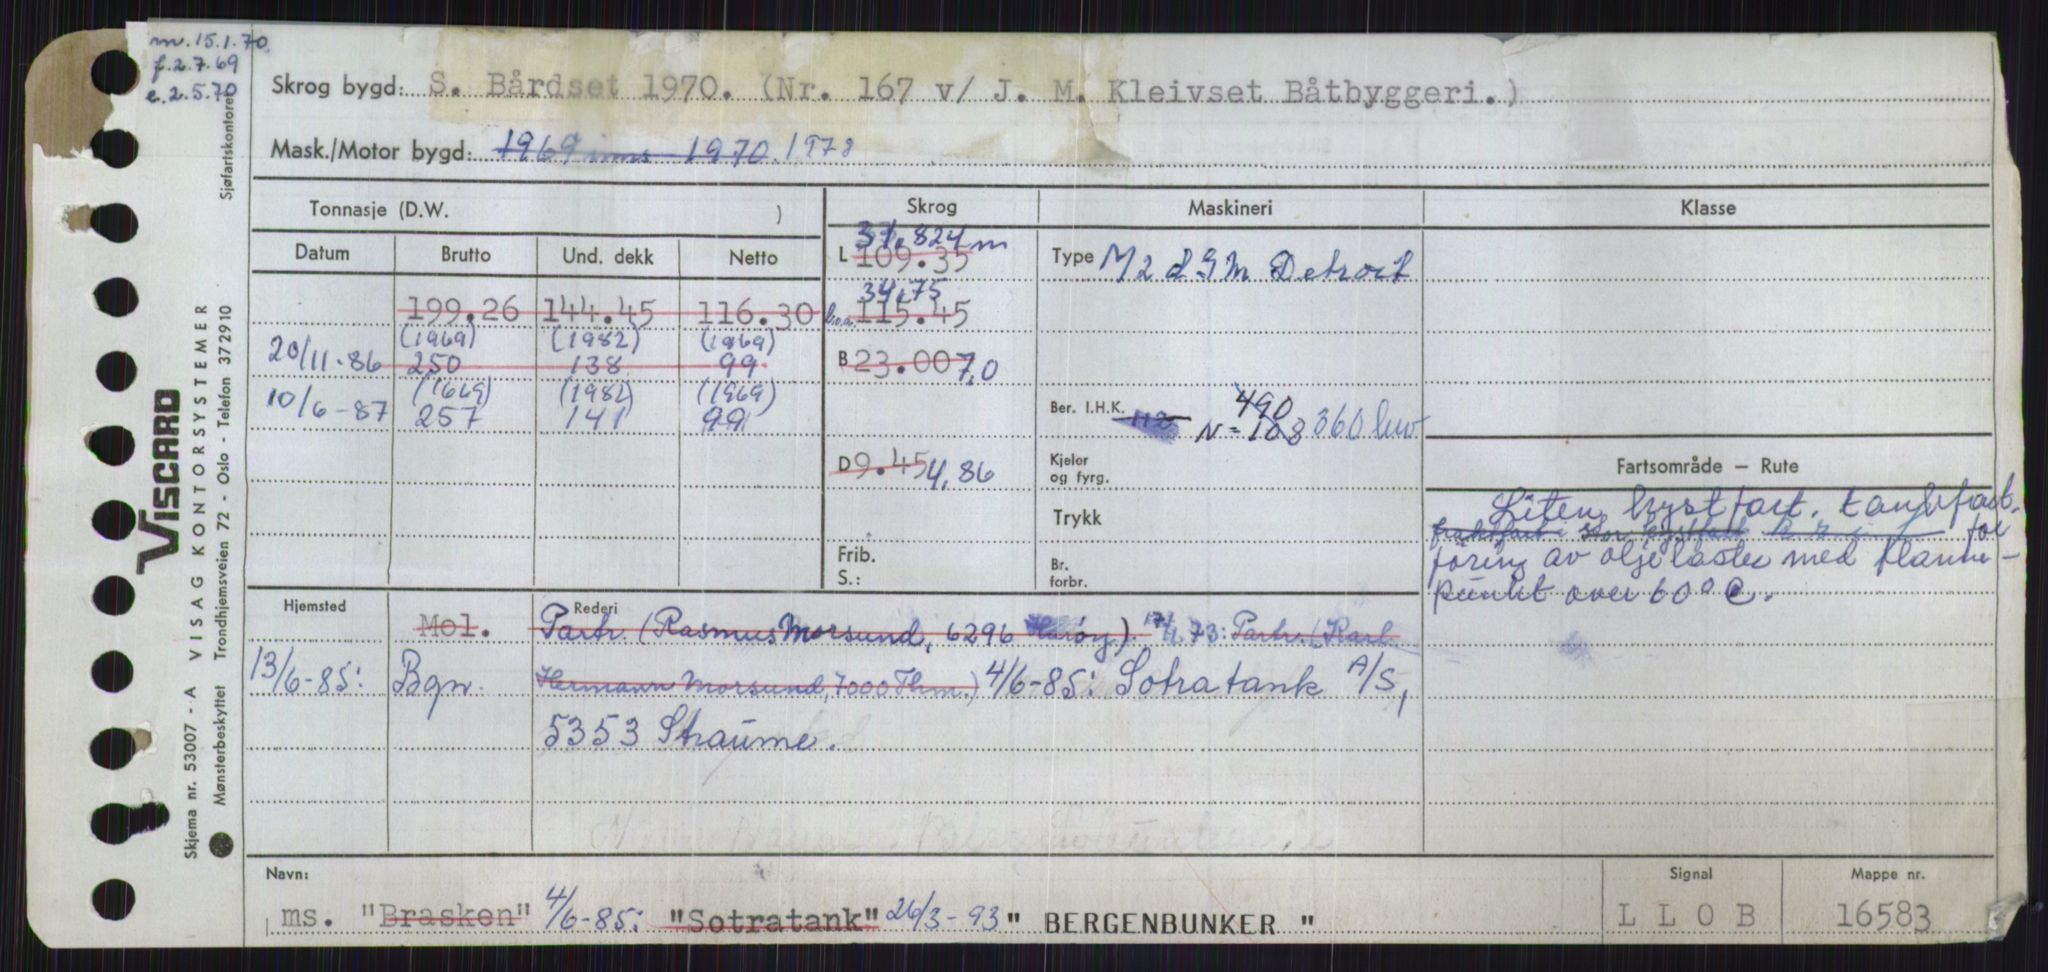 m. 15.1.70.
f. 2.7.69
e. 2.5.70
Sjøfartskontoret
Skrog bygd: S. Bårdset 1970. (Nr. 167 v/ J. M. Kleivset Båtbyggeri.)
Mask./Motor bygd: 1969 1970. 1978
Tonnasje (D.W. )
Skrog Maskineri Klasse
Datum Brutto Und. dekk Netto
31.824 m
L 109.35
Type M 2 GM Detroit
34,75
199.26 144.45 116.30 l.o.a. 115.45
(1969) (1982) (1969)
20/11-86 250 138 99 B 23.00 7,0
(1969) (1982) (1969)
10/6-87 257 141 99
Ber. I.H.K. 112 N = 108 490 360 kw
D 9.45 4,86
Kjeler og fyrg.
Trykk
Frib. S.:
Br. forbr.
Fartsområde – Rute
Liten kystfart. tankfart.
for
føring av oljelaster med flamme-
punkt over 60° C.
Hjemsted Rederi
Mol. Partr. (Rasmus Morsund, 6296 Harøy). 73: Partr. (Karl
13/6-85: Bgn. Hermann Morsund, 7000 Thm.) 4/6-85: Sotratank A/S,
5353 Straume.
Navn: Signal Mappe nr.
ms. "Brasken" 4/6-85: "Sotratank" 26/3-93 " BERGENBUNKER " L L O B 16583
VISCARD
VISAG KONTORSYSTEMER
Skjema nr. 53007 - A
Mønsterbeskyttet Trondhjemsveien 72 - Oslo - Telefon 372910